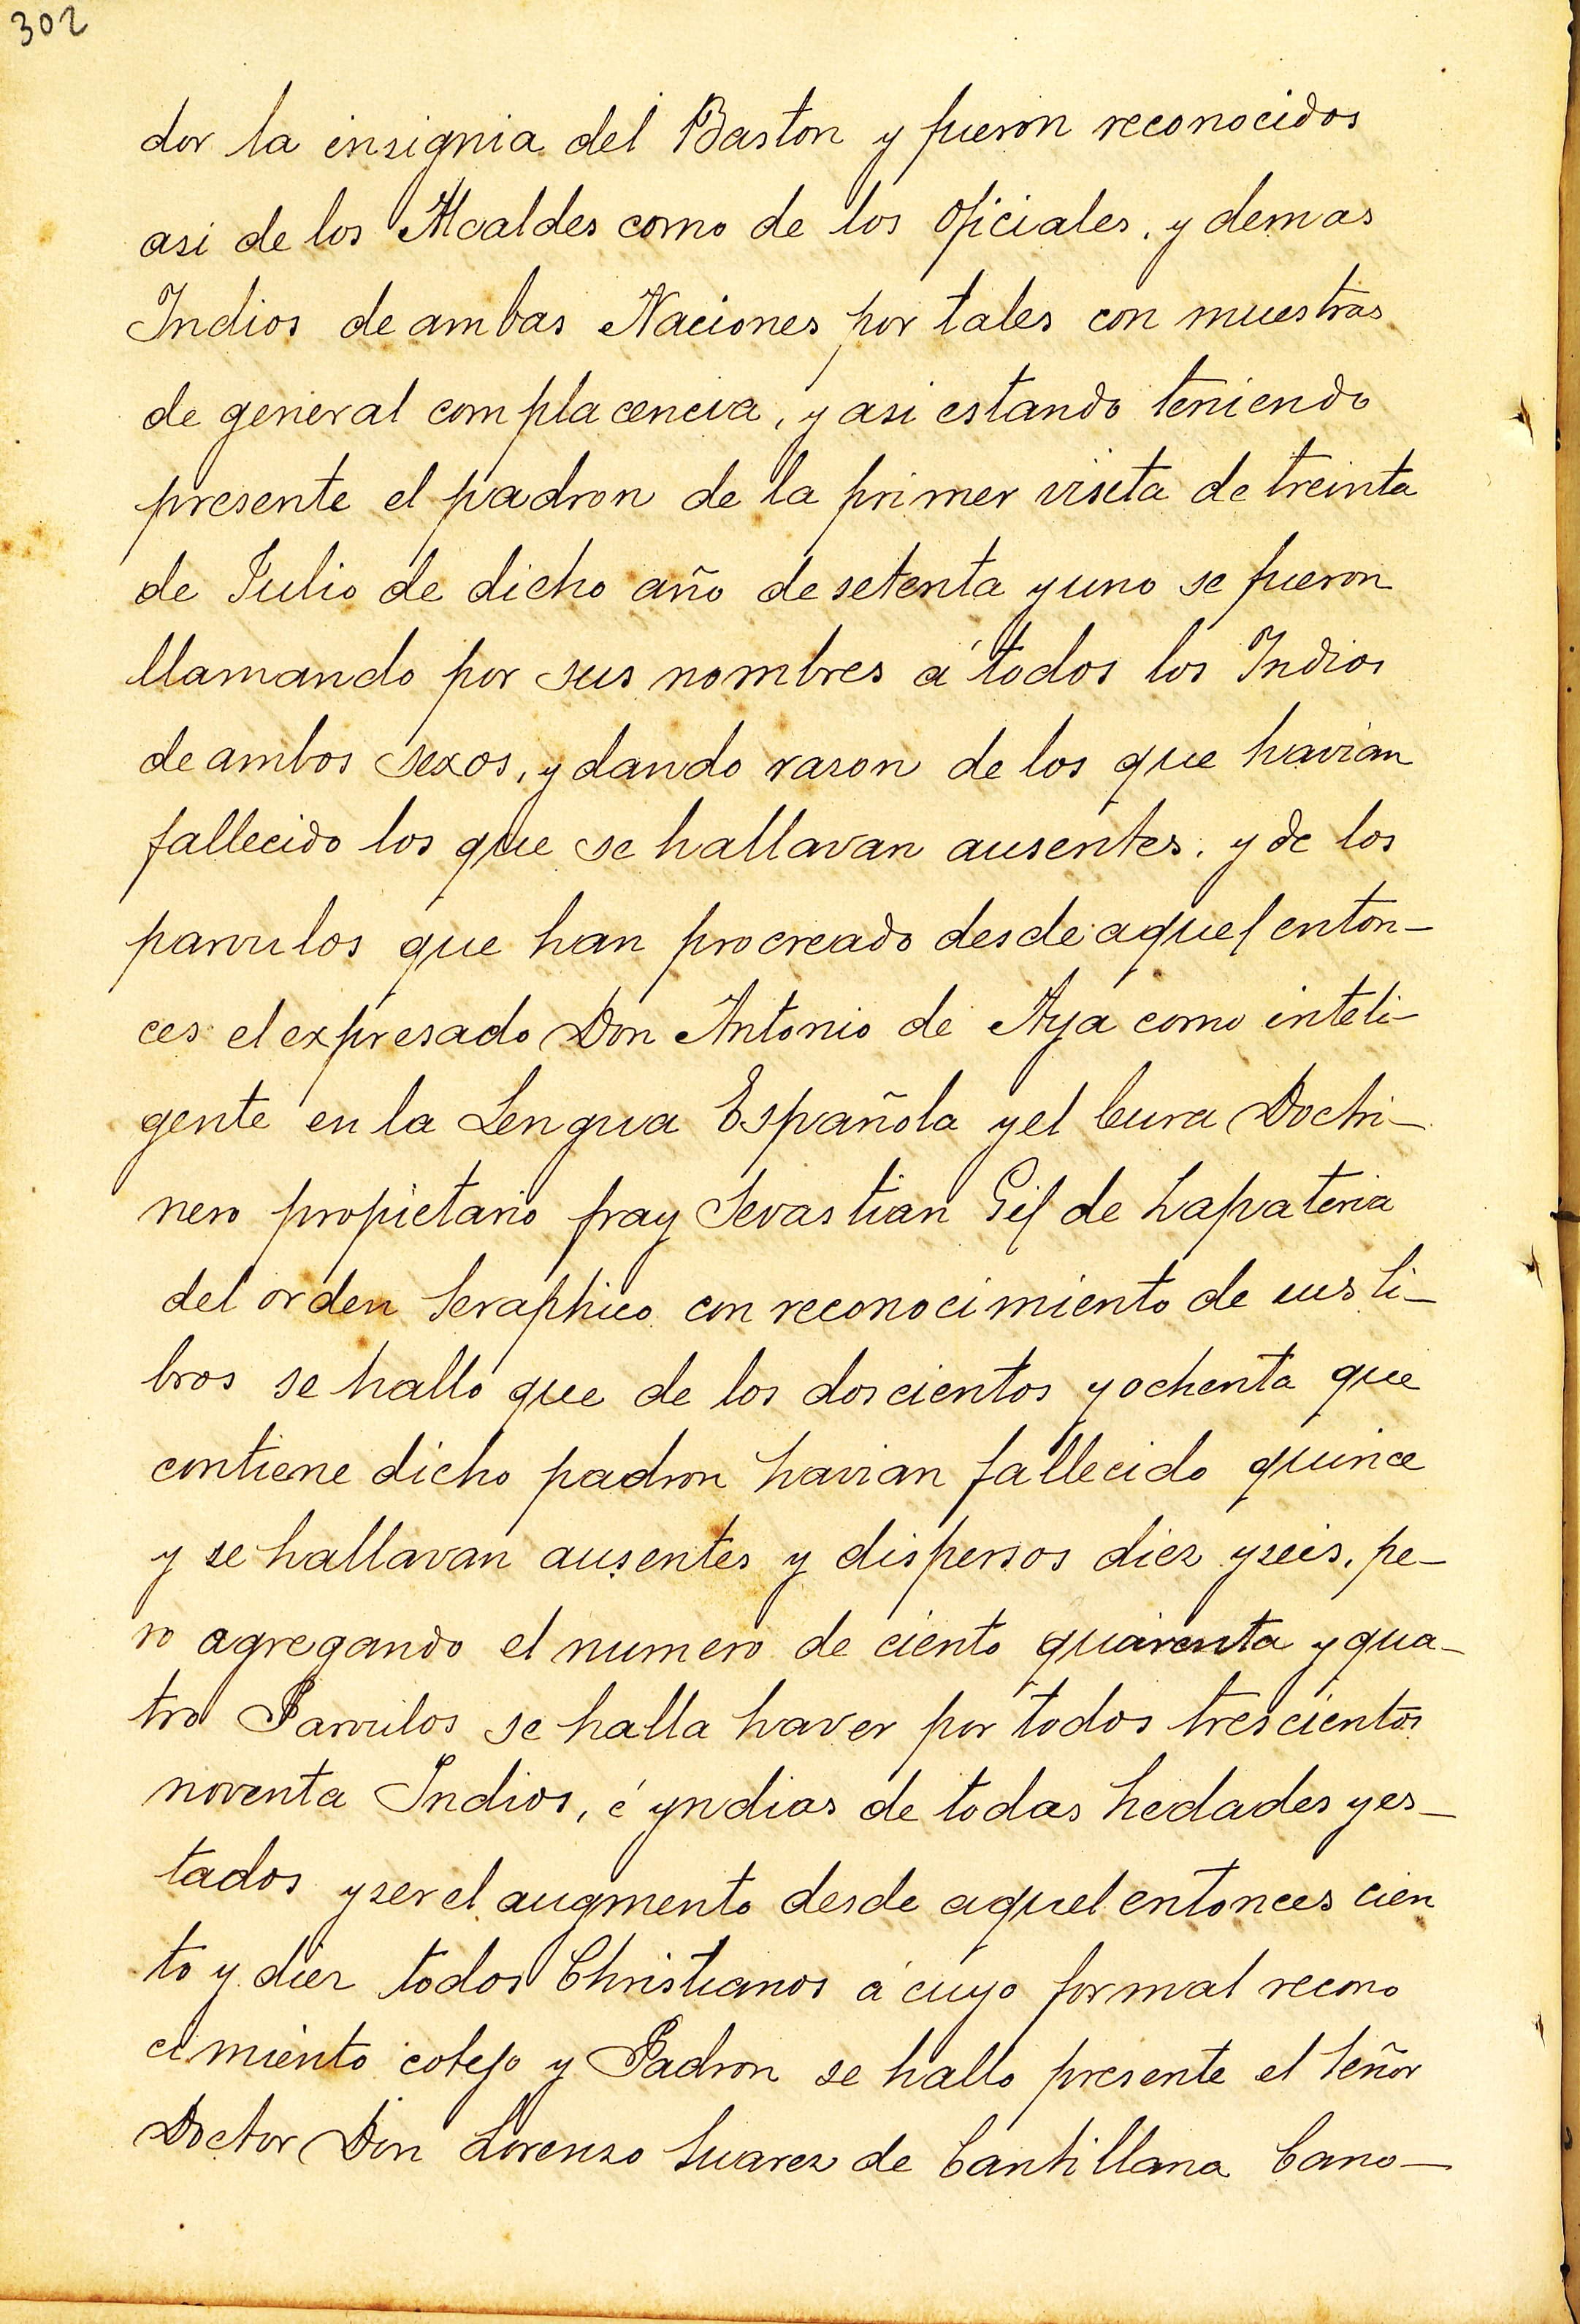 302
dor la insignia del Baston y fueron reconocidos
asi de los Alcaldes como de los oficiales, y demas
Indios de ambas Naciones por tales con muestras
de general complacencia, y asi estando teniendo
presente el padron de la primer visita de treinta
de Julio de dicho año de setenta y uno se fueron
llamando por sus nombres á todos los Indios
de ambos sexos, y dando rason de los que havian
fallecido los que se hallavan ausentes, y de los
parvulos que han procreado desde aquel enton-
ces el expresado Don Antonio de Aya como inteli-
gente en la Lengua Española y el Cura Doctri-
nero propietario fray Sevastian Gil de Lapateria
del orden Seraphico con reconocimiento de sus li-
bros se halló que de los doscientos y ochenta que
contiene dicho padron havian fallecido quince
y se hallavan ausentes y dispersos diez y seis, pe-
ro agregando el numero de ciento quarenta y qua-
tro Parvulos se halla haver por todos trescientos
noventa Indios, é yndias de todas hedades y es-
tados y ser el augmento desde aquel entonces cien
to y diez todos Christianos á cuyo formal recono
cimiento cotejo y Padron se hallo presente el Señor
Doctor Don Lorenzo Suarez de Cantillana Cano-